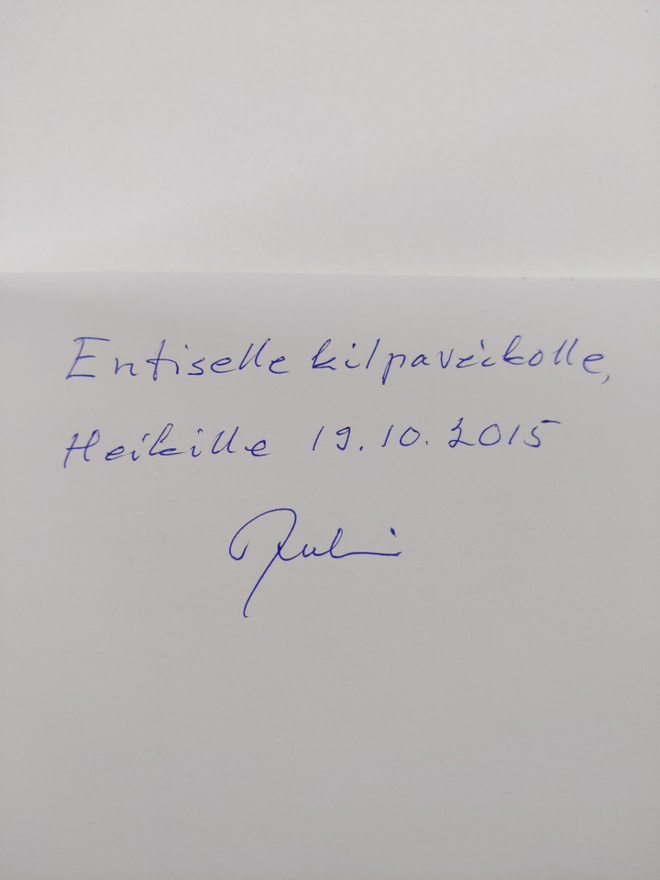 Entiselle kilpaveikolle,
Heikille 19.10.2015